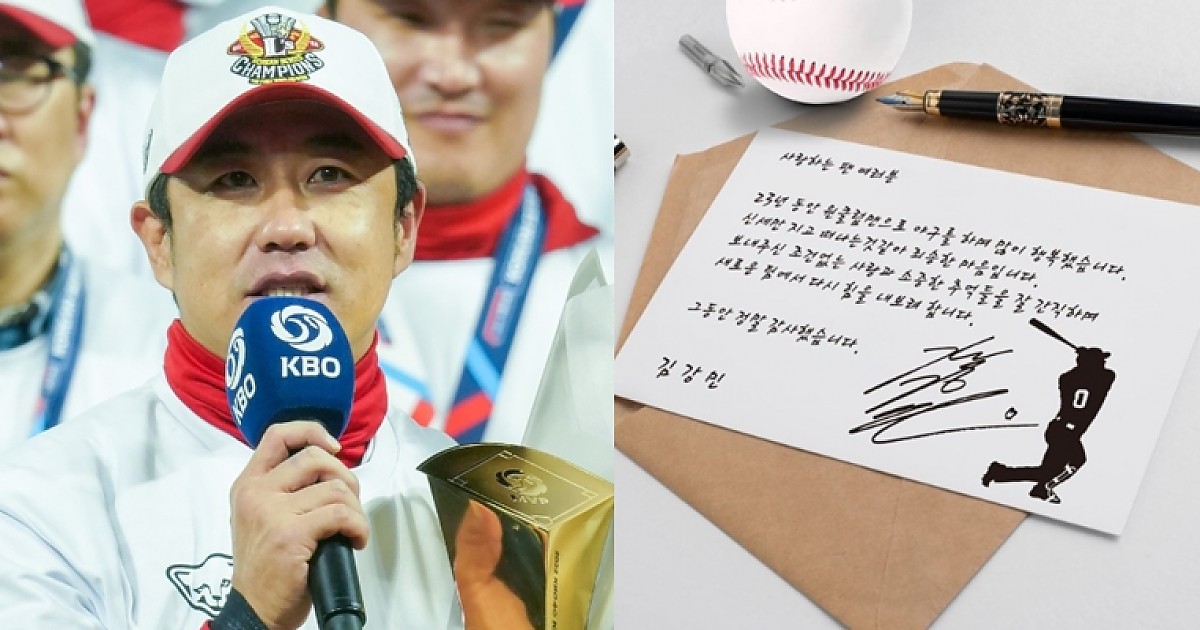 L's
CHAMPIONS
KBO
KBO
MVP
사랑하는 팬 여러분
23년 동안 원클럽맨으로 야구를 하며 많이 행복했습니다.
신세만 지고 떠나는것같아 죄송한 마음입니다.
보내주신 조건없는 사랑과 소중한 추억들을 잘 간직하며
새로운 팀에서 다시 힘을 내보려 합니다.
그동안 정말 감사했습니다.
김강민
0
0